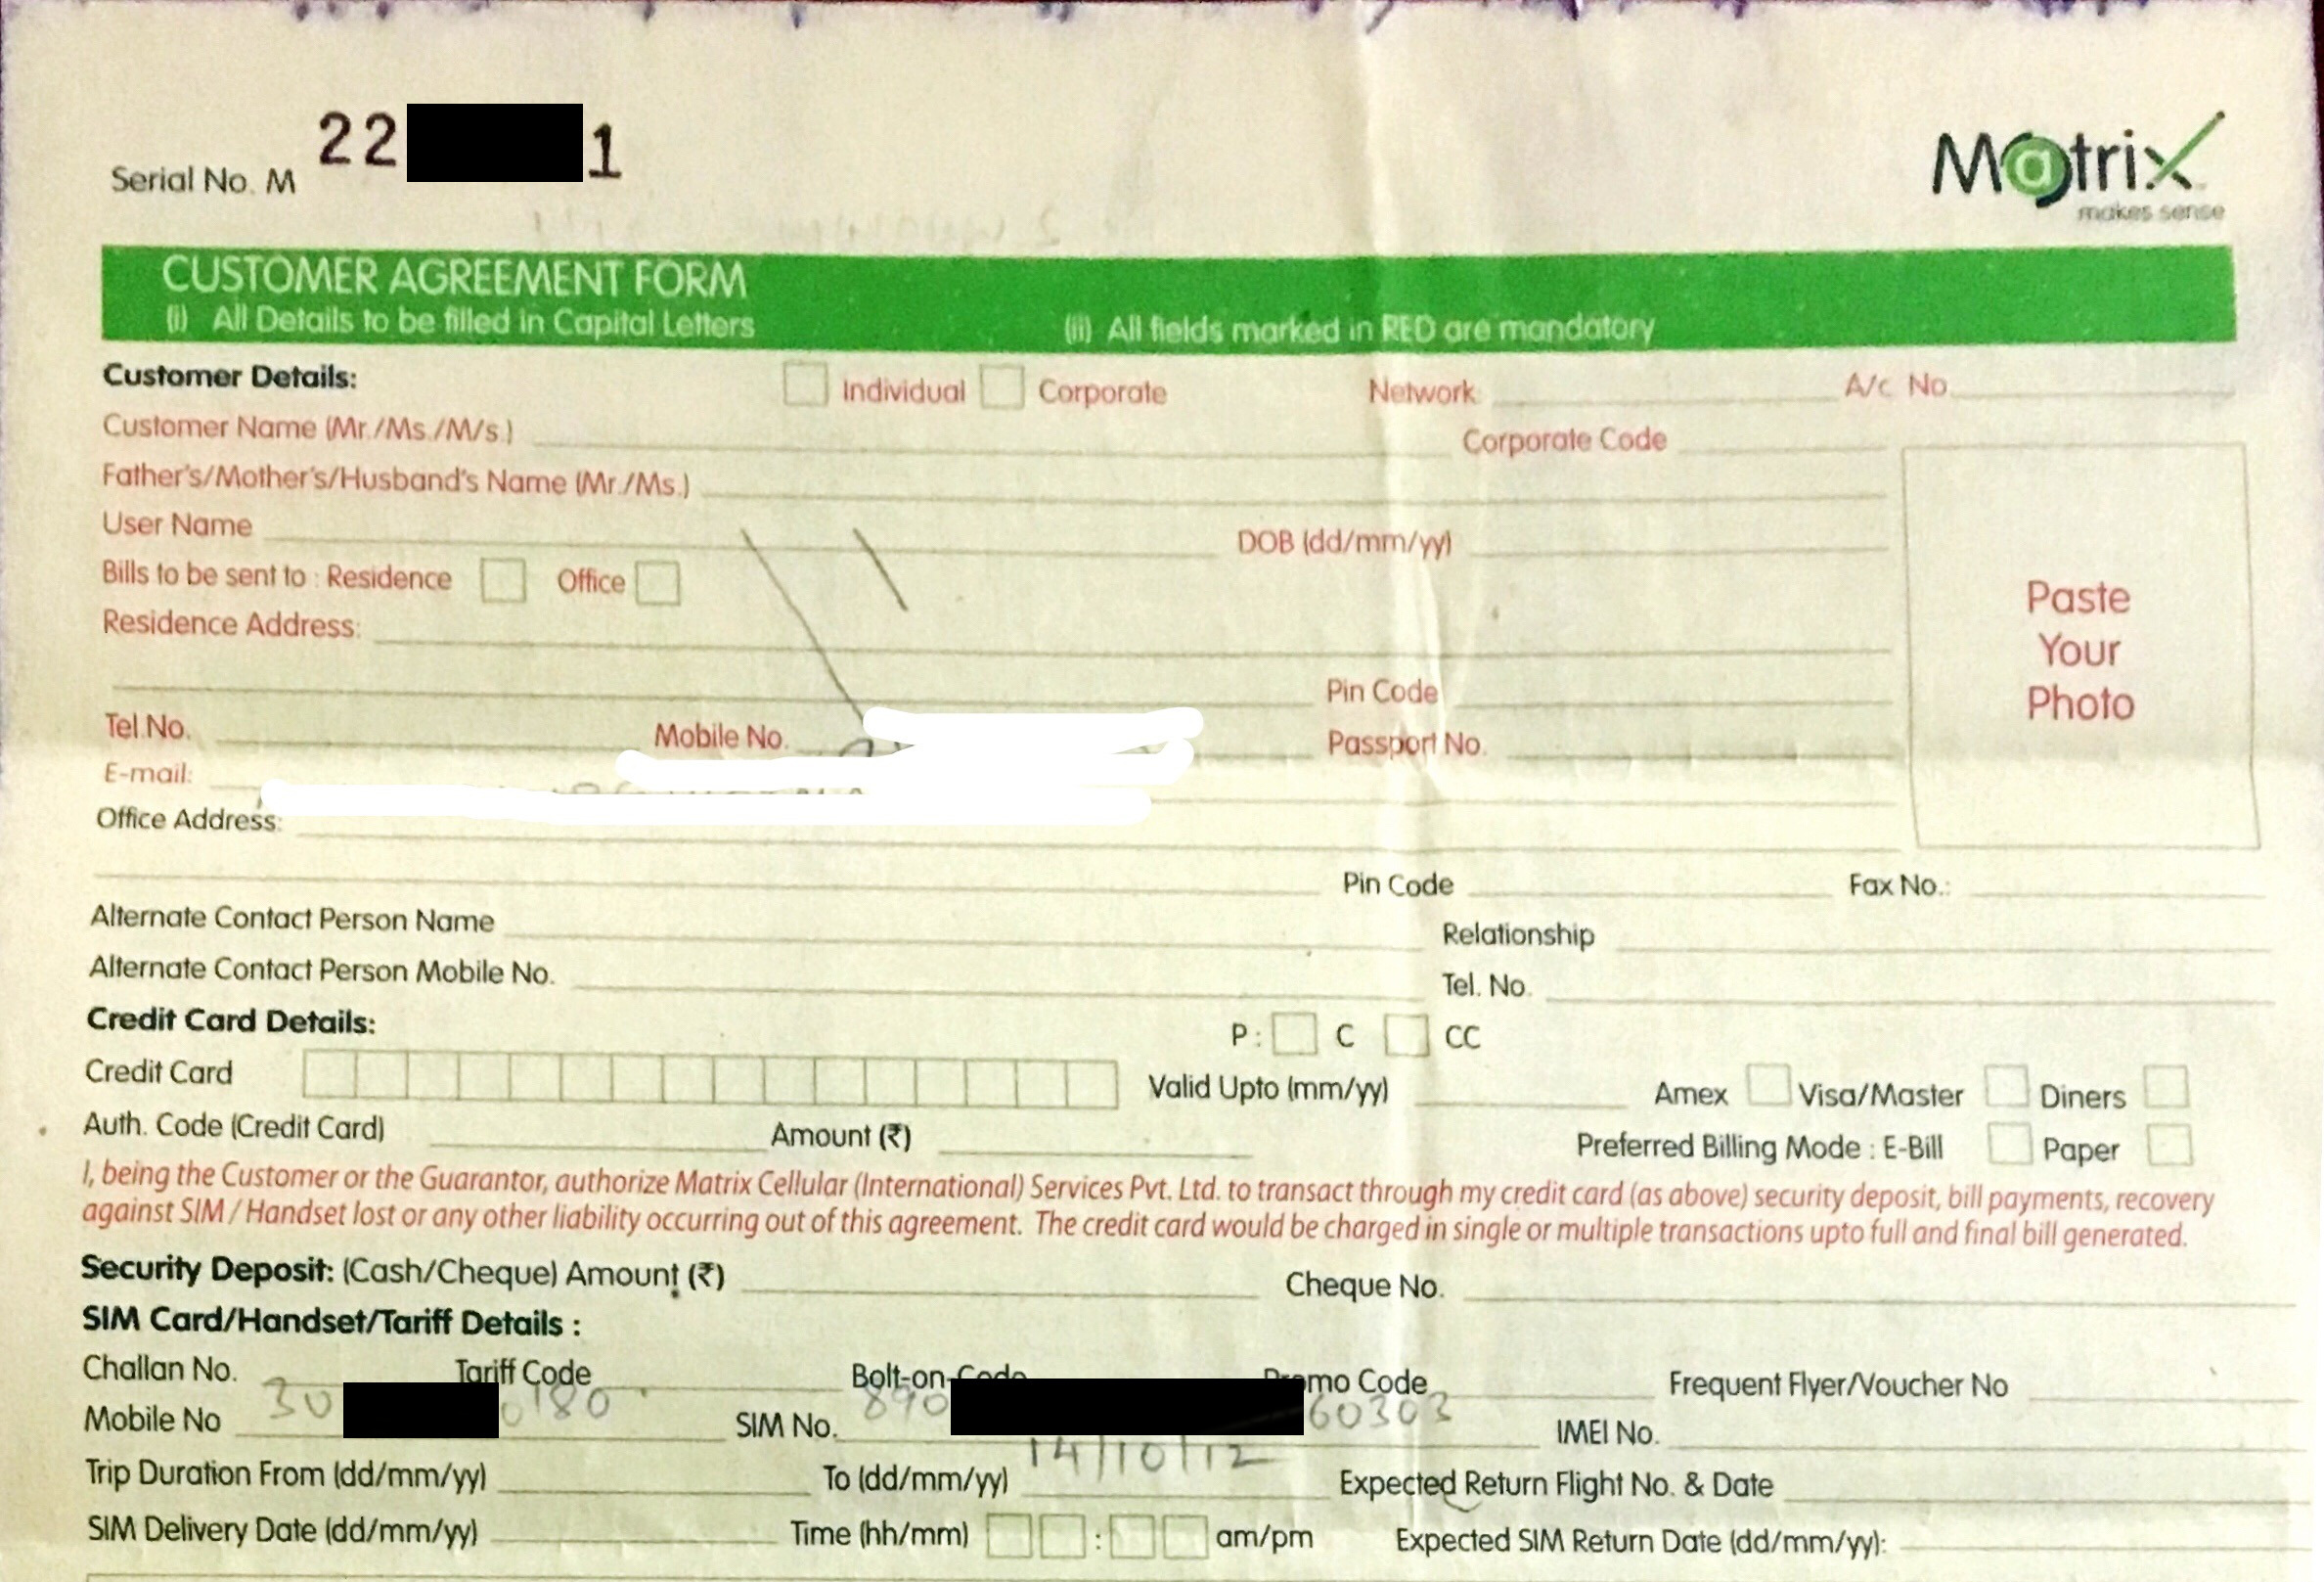 22 1
Serial No. M
Matrix
makes sense
CUSTOMER AGREEMENT FORM
(i) All Details to be filled in Capital Letters (ii) All fields marked in RED are mandatory
Customer Details: Individual Corporate Network A/c. No.
Customer Name (Mr./Ms./M/s.) Corporate Code
Father's/Mother's/Husband's Name (Mr./Ms.)
User Name DOB (dd/mm/yy)
Bills to be sent to : Residence Office
Residence Address:
Paste
Your
Photo
Pin Code
Tel.No. Mobile No. Passport No.
E-mail:
Office Address:
Pin Code Fax No.:
Alternate Contact Person Name Relationship
Alternate Contact Person Mobile No. Tel. No.
Credit Card Details: P: C CC
Credit Card Valid Upto (mm/yy) Amex Visa/Master Diners
Auth. Code (Credit Card) Amount (₹) Preferred Billing Mode : E-Bill Paper
I, being the Customer or the Guarantor, authorize Matrix Cellular (International) Services Pvt. Ltd. to transact through my credit card (as above) security deposit, bill payments, recovery
against SIM / Handset lost or any other liability occurring out of this agreement. The credit card would be charged in single or multiple transactions upto full and final bill generated.
Security Deposit: (Cash/Cheque) Amount (₹) Cheque No.
SIM Card/Handset/Tariff Details :
Challan No. Tariff Code Bolt-on-Code Promo Code Frequent Flyer/Voucher No
Mobile No 30 0180 SIM No. 890 60303 IMEI No.
Trip Duration From (dd/mm/yy) To (dd/mm/yy) 14/10/12 Expected Return Flight No. & Date
SIM Delivery Date (dd/mm/yy) Time (hh/mm) : am/pm Expected SIM Return Date (dd/mm/yy):